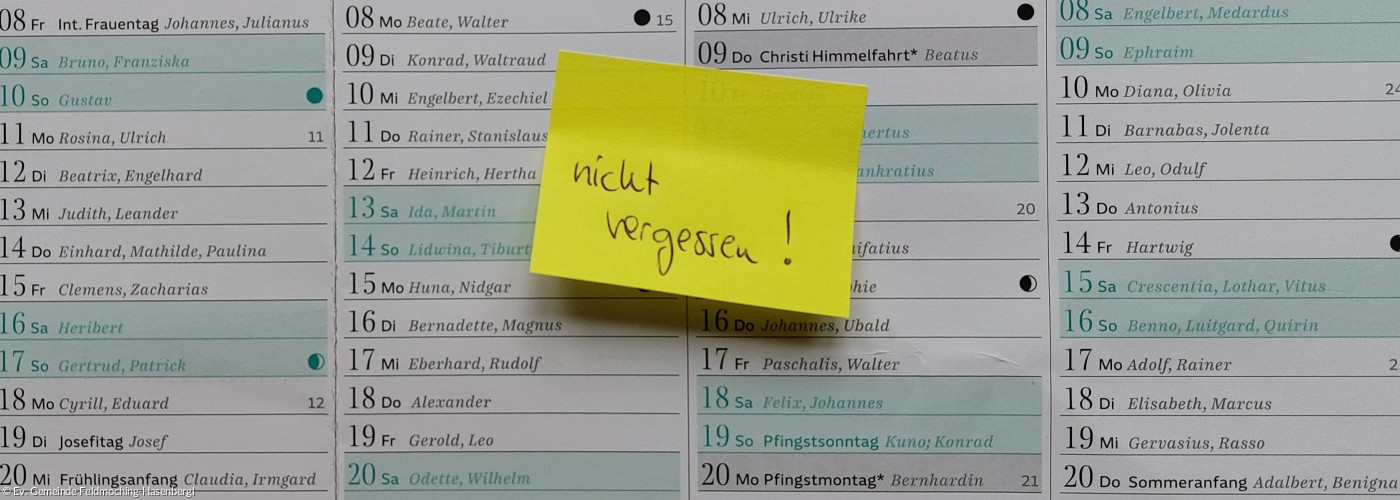 08 Fr Int. Frauentag Johannes, Julianus
09 Sa Bruno, Franziska
10 So Gustav
11 Mo Rosina, Ulrich 11
12 Di Beatrix, Engelhard
13 Mi Judith, Leander
14 Do Einhard, Mathilde, Paulina
15 Fr Clemens, Zacharias
16 Sa Heribert
17 So Gertrud, Patrick
18 Mo Cyrill, Eduard 12
19 Di Josefitag Josef
20 Mi Frühlingsanfang Claudia, Irmgard
08 Mo Beate, Walter 15
09 Di Konrad, Waltraud
10 Mi Engelbert, Ezechiel
11 Do Rainer, Stanislaus
12 Fr Heinrich, Hertha
13 Sa Ida, Martin
14 So Lidwina, Tiburt
15 Mo Huna, Nidgar
16 Di Bernadette, Magnus
17 Mi Eberhard, Rudolf
18 Do Alexander
19 Fr Gerold, Leo
20 Sa Odette, Wilhelm
nicht
vergessen!
08 Mi Ulrich, Ulrike
09 Do Christi Himmelfahrt* Beatus
ertus
ankratius
20
ifatius
hie
16 Do Johannes, Ubald
17 Fr Paschalis, Walter
18 Sa Felix, Johannes
19 So Pfingstsonntag Kuno; Konrad
20 Mo Pfingstmontag* Bernhardin 21
08 Sa Engelbert, Medardus
09 So Ephraim
10 Mo Diana, Olivia 24
11 Di Barnabas, Jolenta
12 Mi Leo, Odulf
13 Do Antonius
14 Fr Hartwig
15 Sa Crescentia, Lothar, Vitus
16 So Benno, Luitgard, Quirin
17 Mo Adolf, Rainer 2
18 Di Elisabeth, Marcus
19 Mi Gervasius, Rasso
20 Do Sommeranfang Adalbert, Benigna
© Ev. Gemeinde Feldmoching-Hasenbergl